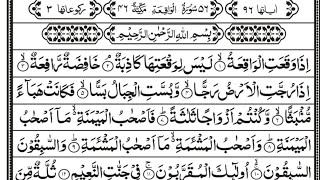 اٰیاتها ٩٦ ٥٦ سُوْرَةُ الْوَاقِعَةِ مَكِّيَّةٌ ٤٦ رکوعاتها ٣
بِسْمِ اللّٰهِ الرَّحْمٰنِ الرَّحِيْمِ
اِذَا وَقَعَتِ الْوَاقِعَةُ ۙ لَيْسَ لِوَقْعَتِهَا كَاذِبَةٌ ۘ خَافِضَةٌ رَّافِعَةٌ ۙ
اِذَا رُجَّتِ الْاَرْضُ رَجًّا ۙ وَّبُسَّتِ الْجِبَالُ بَسًّا ۙ فَكَانَتْ هَبَآءً
مُّنْۢبَثًّا ۙ وَّكُنْتُمْ اَزْوَاجًا ثَلٰثَةً ؕ فَاَصْحٰبُ الْمَيْمَنَةِ ۙ مَاۤ اَصْحٰبُ
الْمَيْمَنَةِ ؕ وَاَصْحٰبُ الْمَشْـَٔمَةِ ۙ مَاۤ اَصْحٰبُ الْمَشْـَٔمَةِ ؕ وَالسّٰبِقُوْنَ
السّٰبِقُوْنَ ۚۙ اُولٰٓئِكَ الْمُقَرَّبُوْنَ ۚ فِيْ جَنّٰتِ النَّعِيْمِ ١٢ ثُلَّةٌ مِّنَ